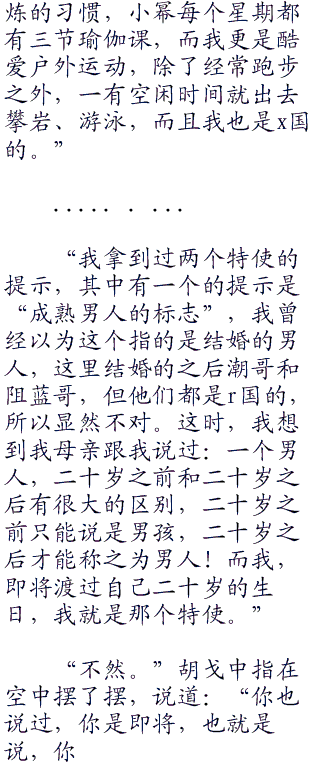 炼的习惯，小幂每个星期都
有三节瑜伽课，而我更是酷
爱户外运动，除了经常跑步
之外，一有空闲时间就出去
攀岩、游泳，而且我也是x国
的。”
..... . ...
“我拿到过两个特使的
提示，其中有一个的提示是
“成熟男人的标志”，我曾
经以为这个指的是结婚的男
人，这里结婚的之后潮哥和
阻蓝哥，但他们都是r国的，
所以显然不对。这时，我想
到我母亲跟我说过：一个男
人，二十岁之前和二十岁之
后有很大的区别，二十岁之
前只能说是男孩，二十岁之
后才能称之为男人！而我，
即将渡过自己二十岁的生
日，我就是那个特使。”
“不然。”胡戈中指在
空中摆了摆，说道：“你也
说过，你是即将，也就是
说，你